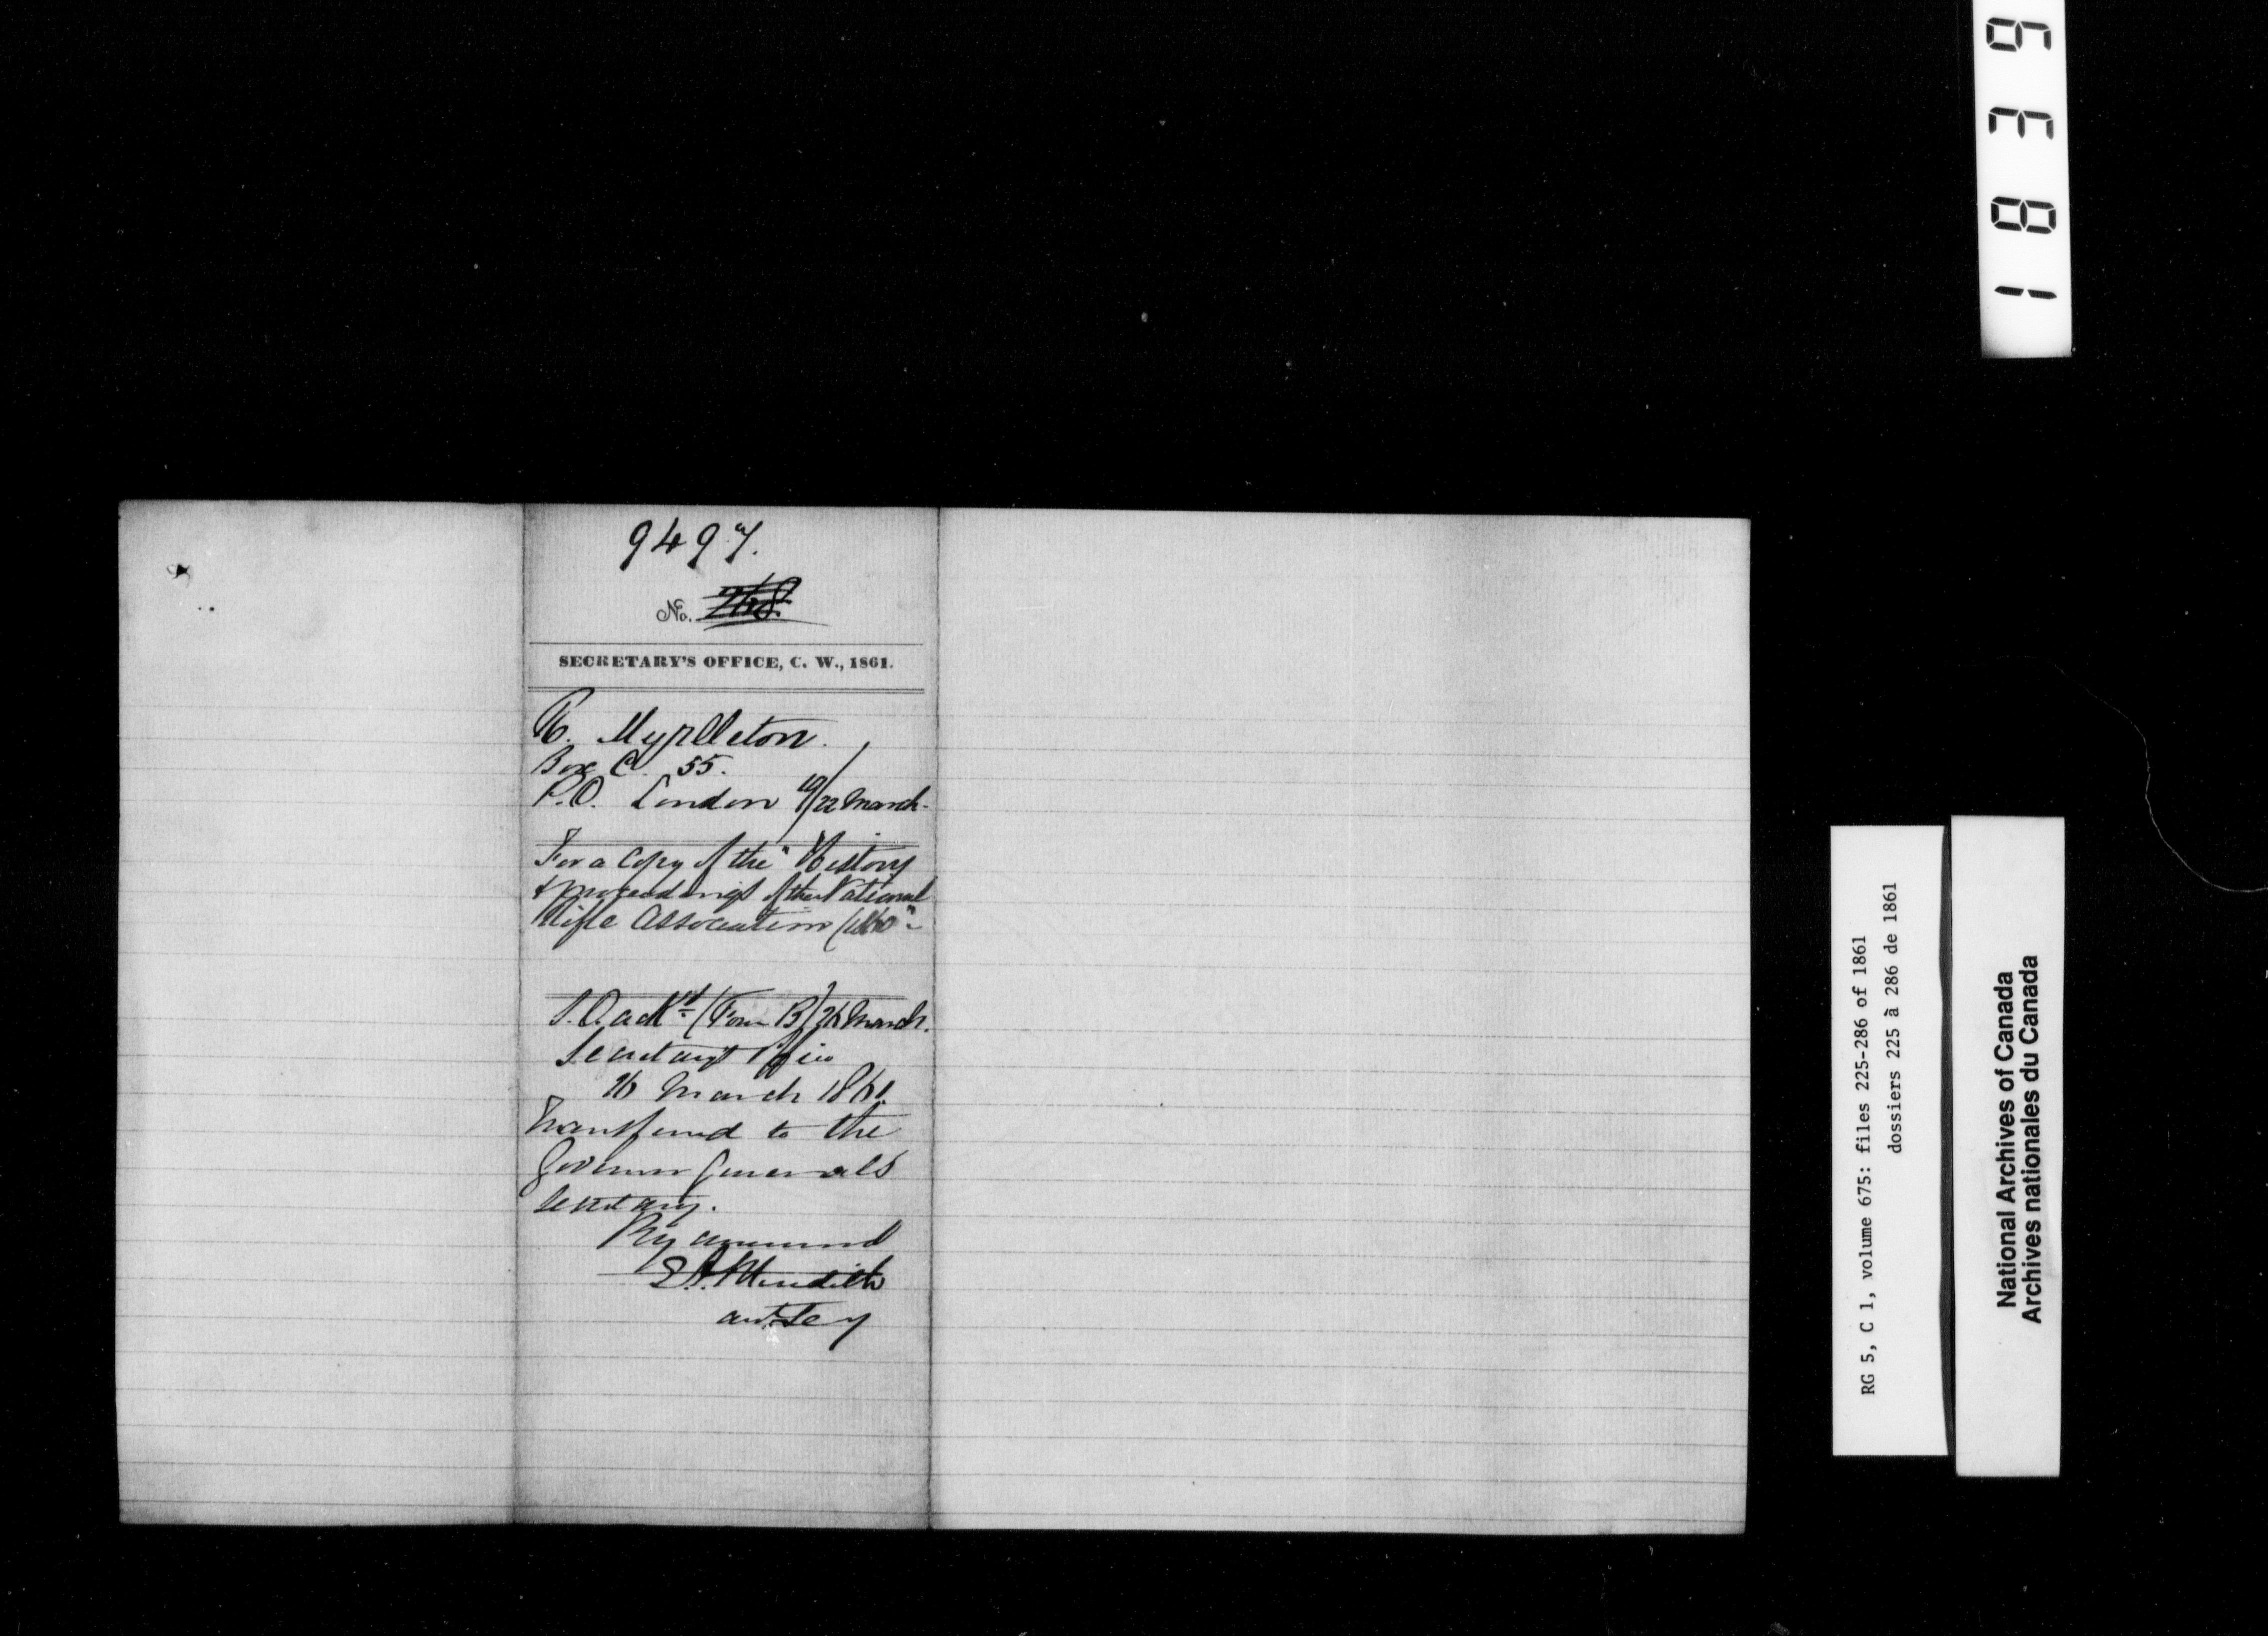 9497.
No. 268.
SECRETARY'S OFFICE, C. W., 1861.
H. Myddleton.
Box C. 55.
P.O. London 19/22 March.
For a copy of the "History
& proceedings of the National
Rifle Association 1860"
S.O. ackd (Form B) 26 March.
Secretary's Office
26 March 1861.
Transferred to the
Governor Generals
Secretary.
By command
E. A. Meredith
Asst. Secy
1839
RG 5, C 1, volume 675: files 225-286 of 1861
dossiers 225 à 286 de 1861
National Archives of Canada
Archives nationales du Canada